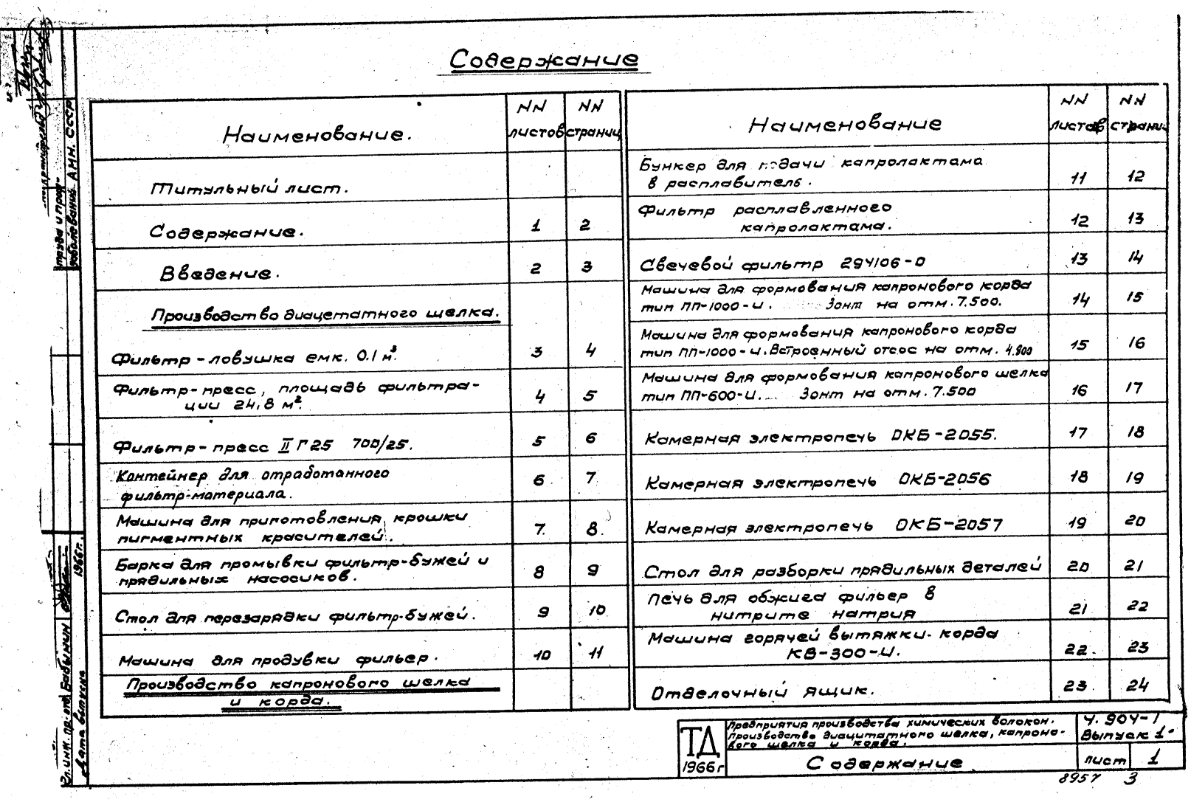 Содержание
Наименование.
NN листов
NN страниц
Титульный лист.
Содержание. 1 2
Введение. 2 3
Производство диацетатного щелка.
Фильтр-ловушка емк. 0.1 м³. 3 4
Фильтр-пресс, площадь фильтра-
ции 24,8 м². 4 5
Фильтр-пресс II Г25 700/25. 5 6
Контейнер для отработанного
фильтр-материала. 6 7
Машина для приготовления крошки
пигментных красителей. 7. 8.
Барка для промывки фильтр-бужей и
прядильных насосиков. 8 9
Стол для перезарядки фильтр-бужей. 9 10
Машина для продувки фильер. 10 11
Производство капронового шелка
и корда.
Наименование
NN листов
NN страниц
Бункер для подачи капролактама
в расплавитель. 11 12
Фильтр расплавленного
капролактама. 12 13
Свечевой фильтр 294106-0 13 14
Машина для формования капронового корда
тип ПП-1000-И. Зонт на отм. 7.500. 14 15
Машина для формования капронового корда
тип ПП-1000-И. Встроенный отсос на отм. 4.800 15 16
Машина для формования капронового шелка
тип ПП-600-И. Зонт на отм. 7.500 16 17
Камерная электропечь ОКБ-2055. 17 18
Камерная электропечь ОКБ-2056 18 19
Камерная электропечь ОКБ-2057 19 20
Стол для разборки прядильных деталей 20 21
Печь для обжига фильер в
нитрите натрия 21 22
Машина горячей вытяжки корда
КВ-300-И. 22. 23
Отделочный ящик. 23 24
ТД
1966г
Предприятия производства химических волокон.
Производство диацитатного шелка, капроно-
вого шелка и корда.
Содержание
4.904-1
Выпуск 1
лист 1
8957 3
труда и проф-
заболеваний АМН. СССР
Гл. инж. пр. отд. Бабынин
Дата выпуска 1966г.